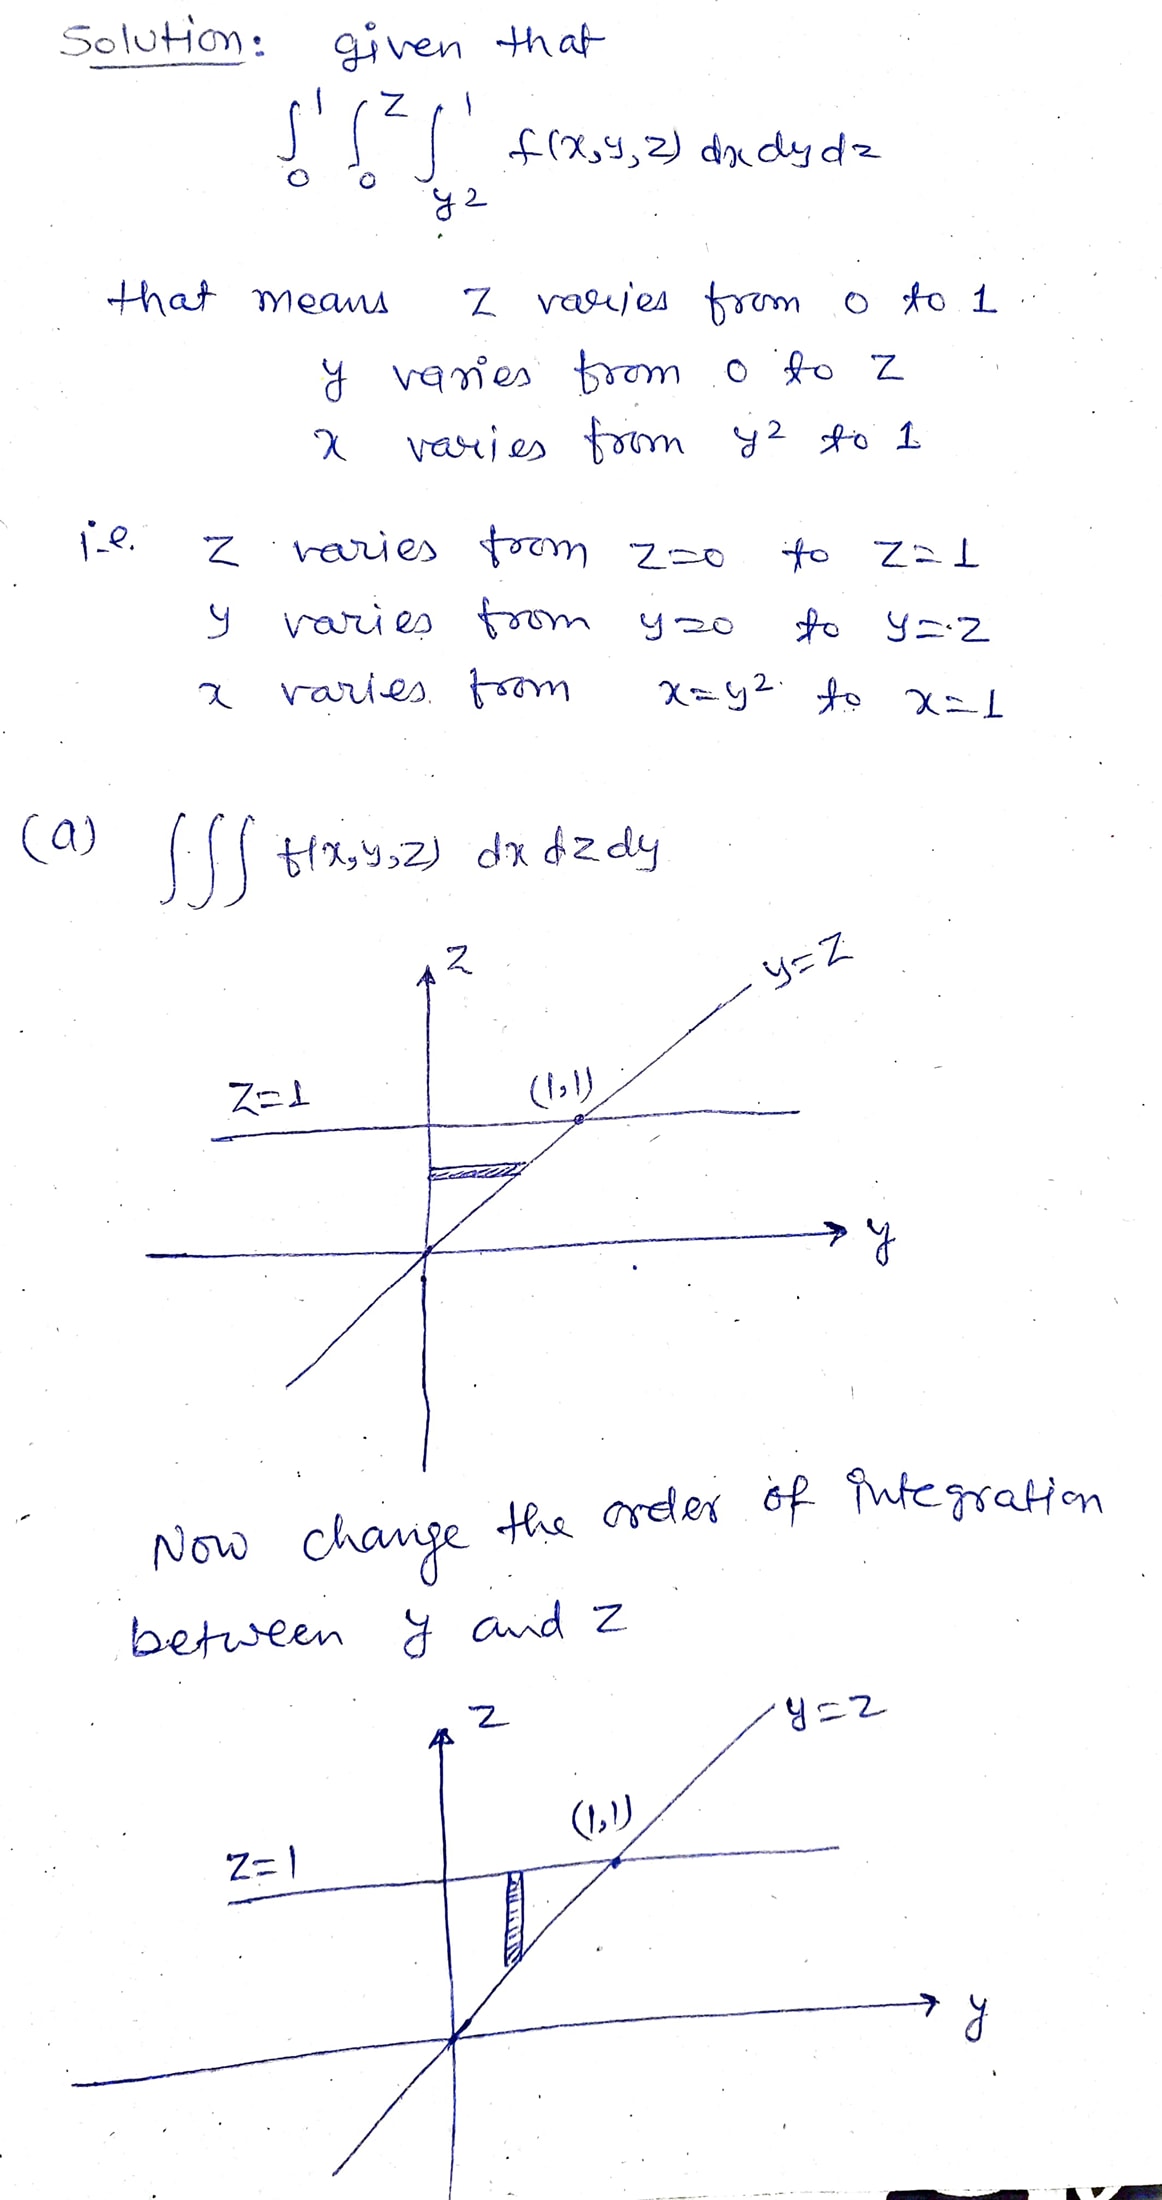 Solution: given that
∫₀¹ ∫₀ᶻ ∫_{y²}¹ f(x,y,z) dx dy dz
that means z varies from 0 to 1
y varies from 0 to z
x varies from y² to 1
i.e. z varies from z=0 to z=1
y varies from y=0 to y=z
x varies from x=y² to x=1
(a) ∫∫∫ f(x,y,z) dx dz dy
z
y=z
z=1
(1,1)
y
Now change the order of integration
between y and z
z
y=z
(1,1)
z=1
y